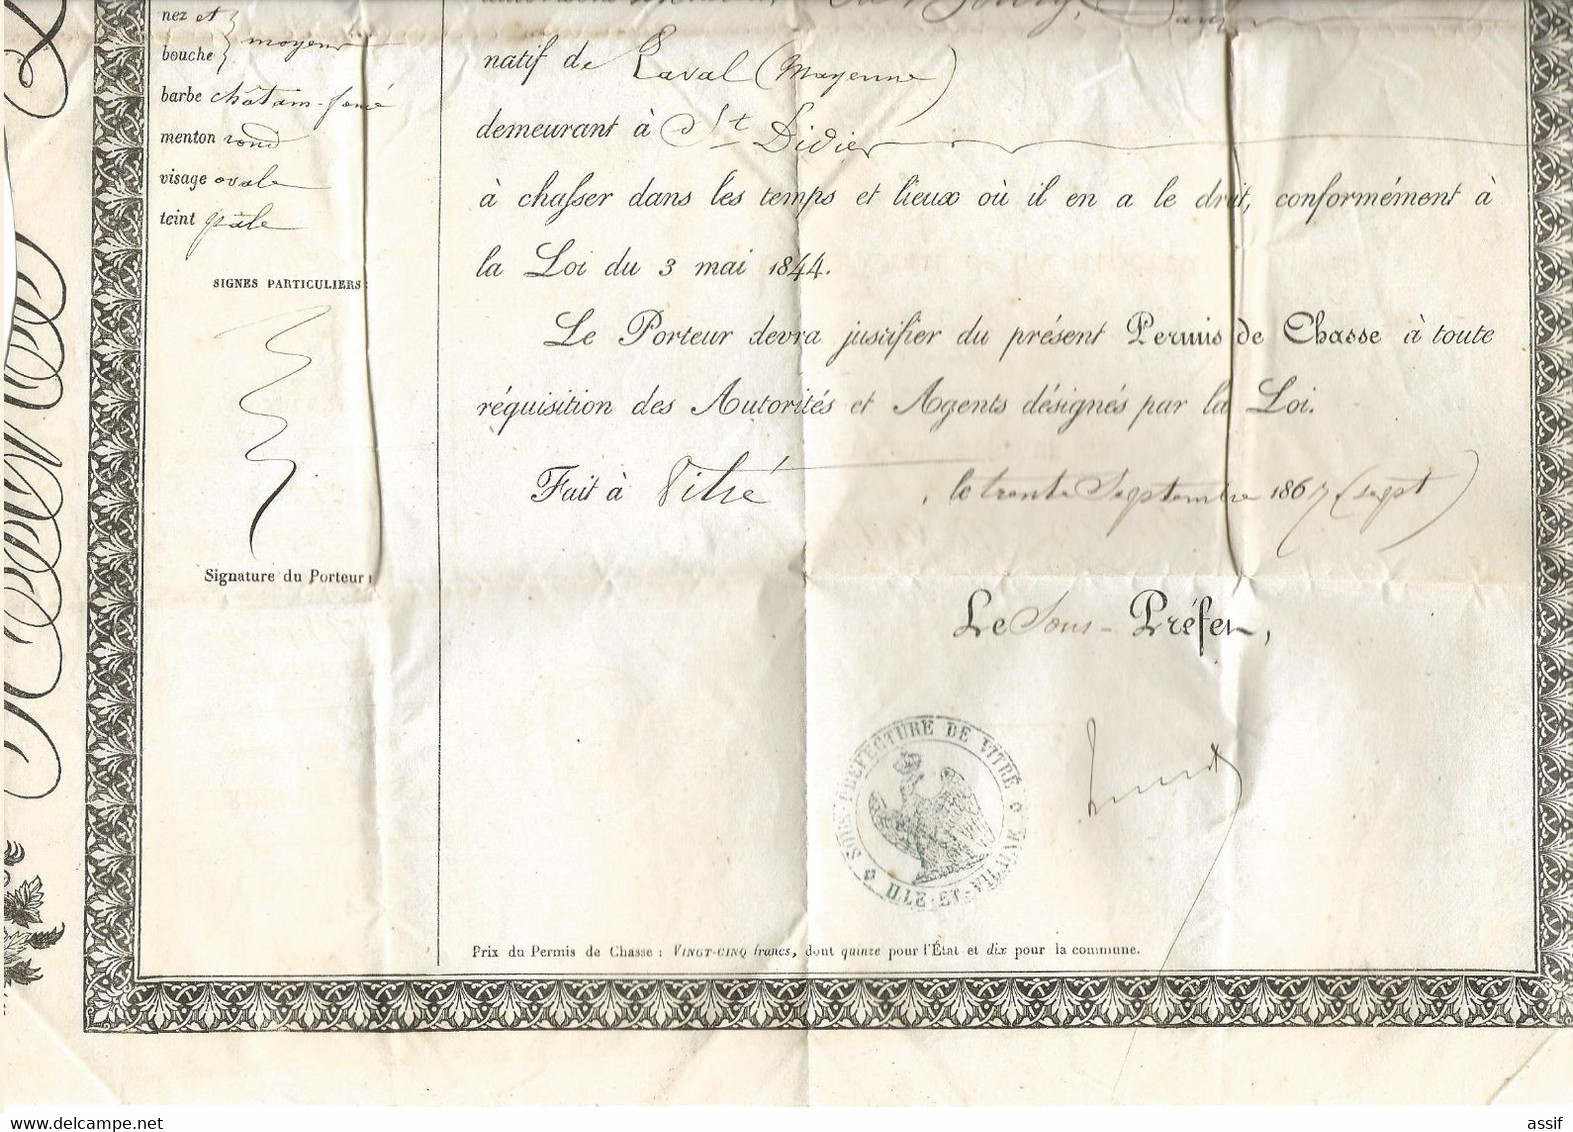 nez et
bouche } moyens
barbe châtain-foncé
menton rond
visage ovale
teint pâle
SIGNES PARTICULIERS :
Signature du Porteur :
natif de Laval (Mayenne)
demeurant à St Didier
à chasser dans les temps et lieux où il en a le droit, conformément à
la Loi du 3 mai 1844.
Le Porteur devra justifier du présent Permis de Chasse à toute
réquisition des Autorités et Agents désignés par la Loi.
Fait à Vitré, le trente Septembre 1867 (sept)
Le Sous-Préfet,
SOUS-PRÉFECTURE DE VITRÉ
ILLE-ET-VILAINE
Prix du Permis de Chasse : VINGT-CINQ francs, dont quinze pour l'État et dix pour la commune.
assif